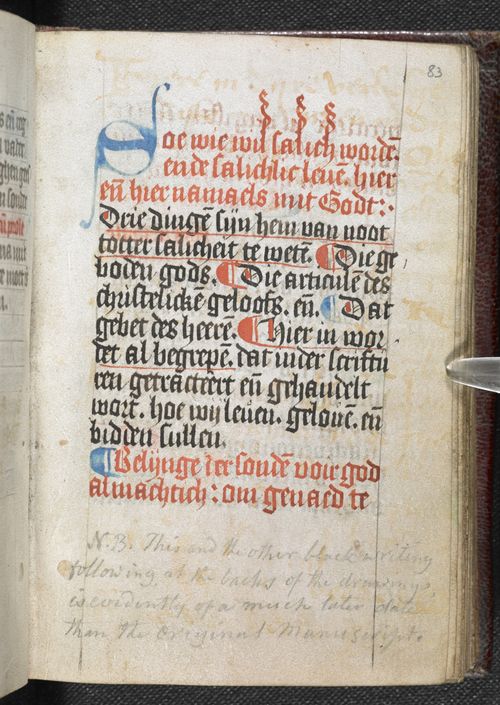 83
Soe wie wil salich wordē
ende salichlic leuē. hier
eñ hier namaels mit Godt:·
Drie dingē sijn hem van noot
totter salicheit te wetē. Die ge
boden gods. Die articulē des
christelickē geloofs. eñ. Dat
gebet des heerē. Hier in wor
det al begrepē. dat inder scriftu
ren getracteert eñ gehandelt
wort. hoe wij leuen. gelouē. eñ
bidden sullen.
Belijnge der sondē voir god
almachtich: om genaed te
N.B. This and the other black writing
following at the backs of the drawings,
is evidently of a much later date
than the original Manuscript.